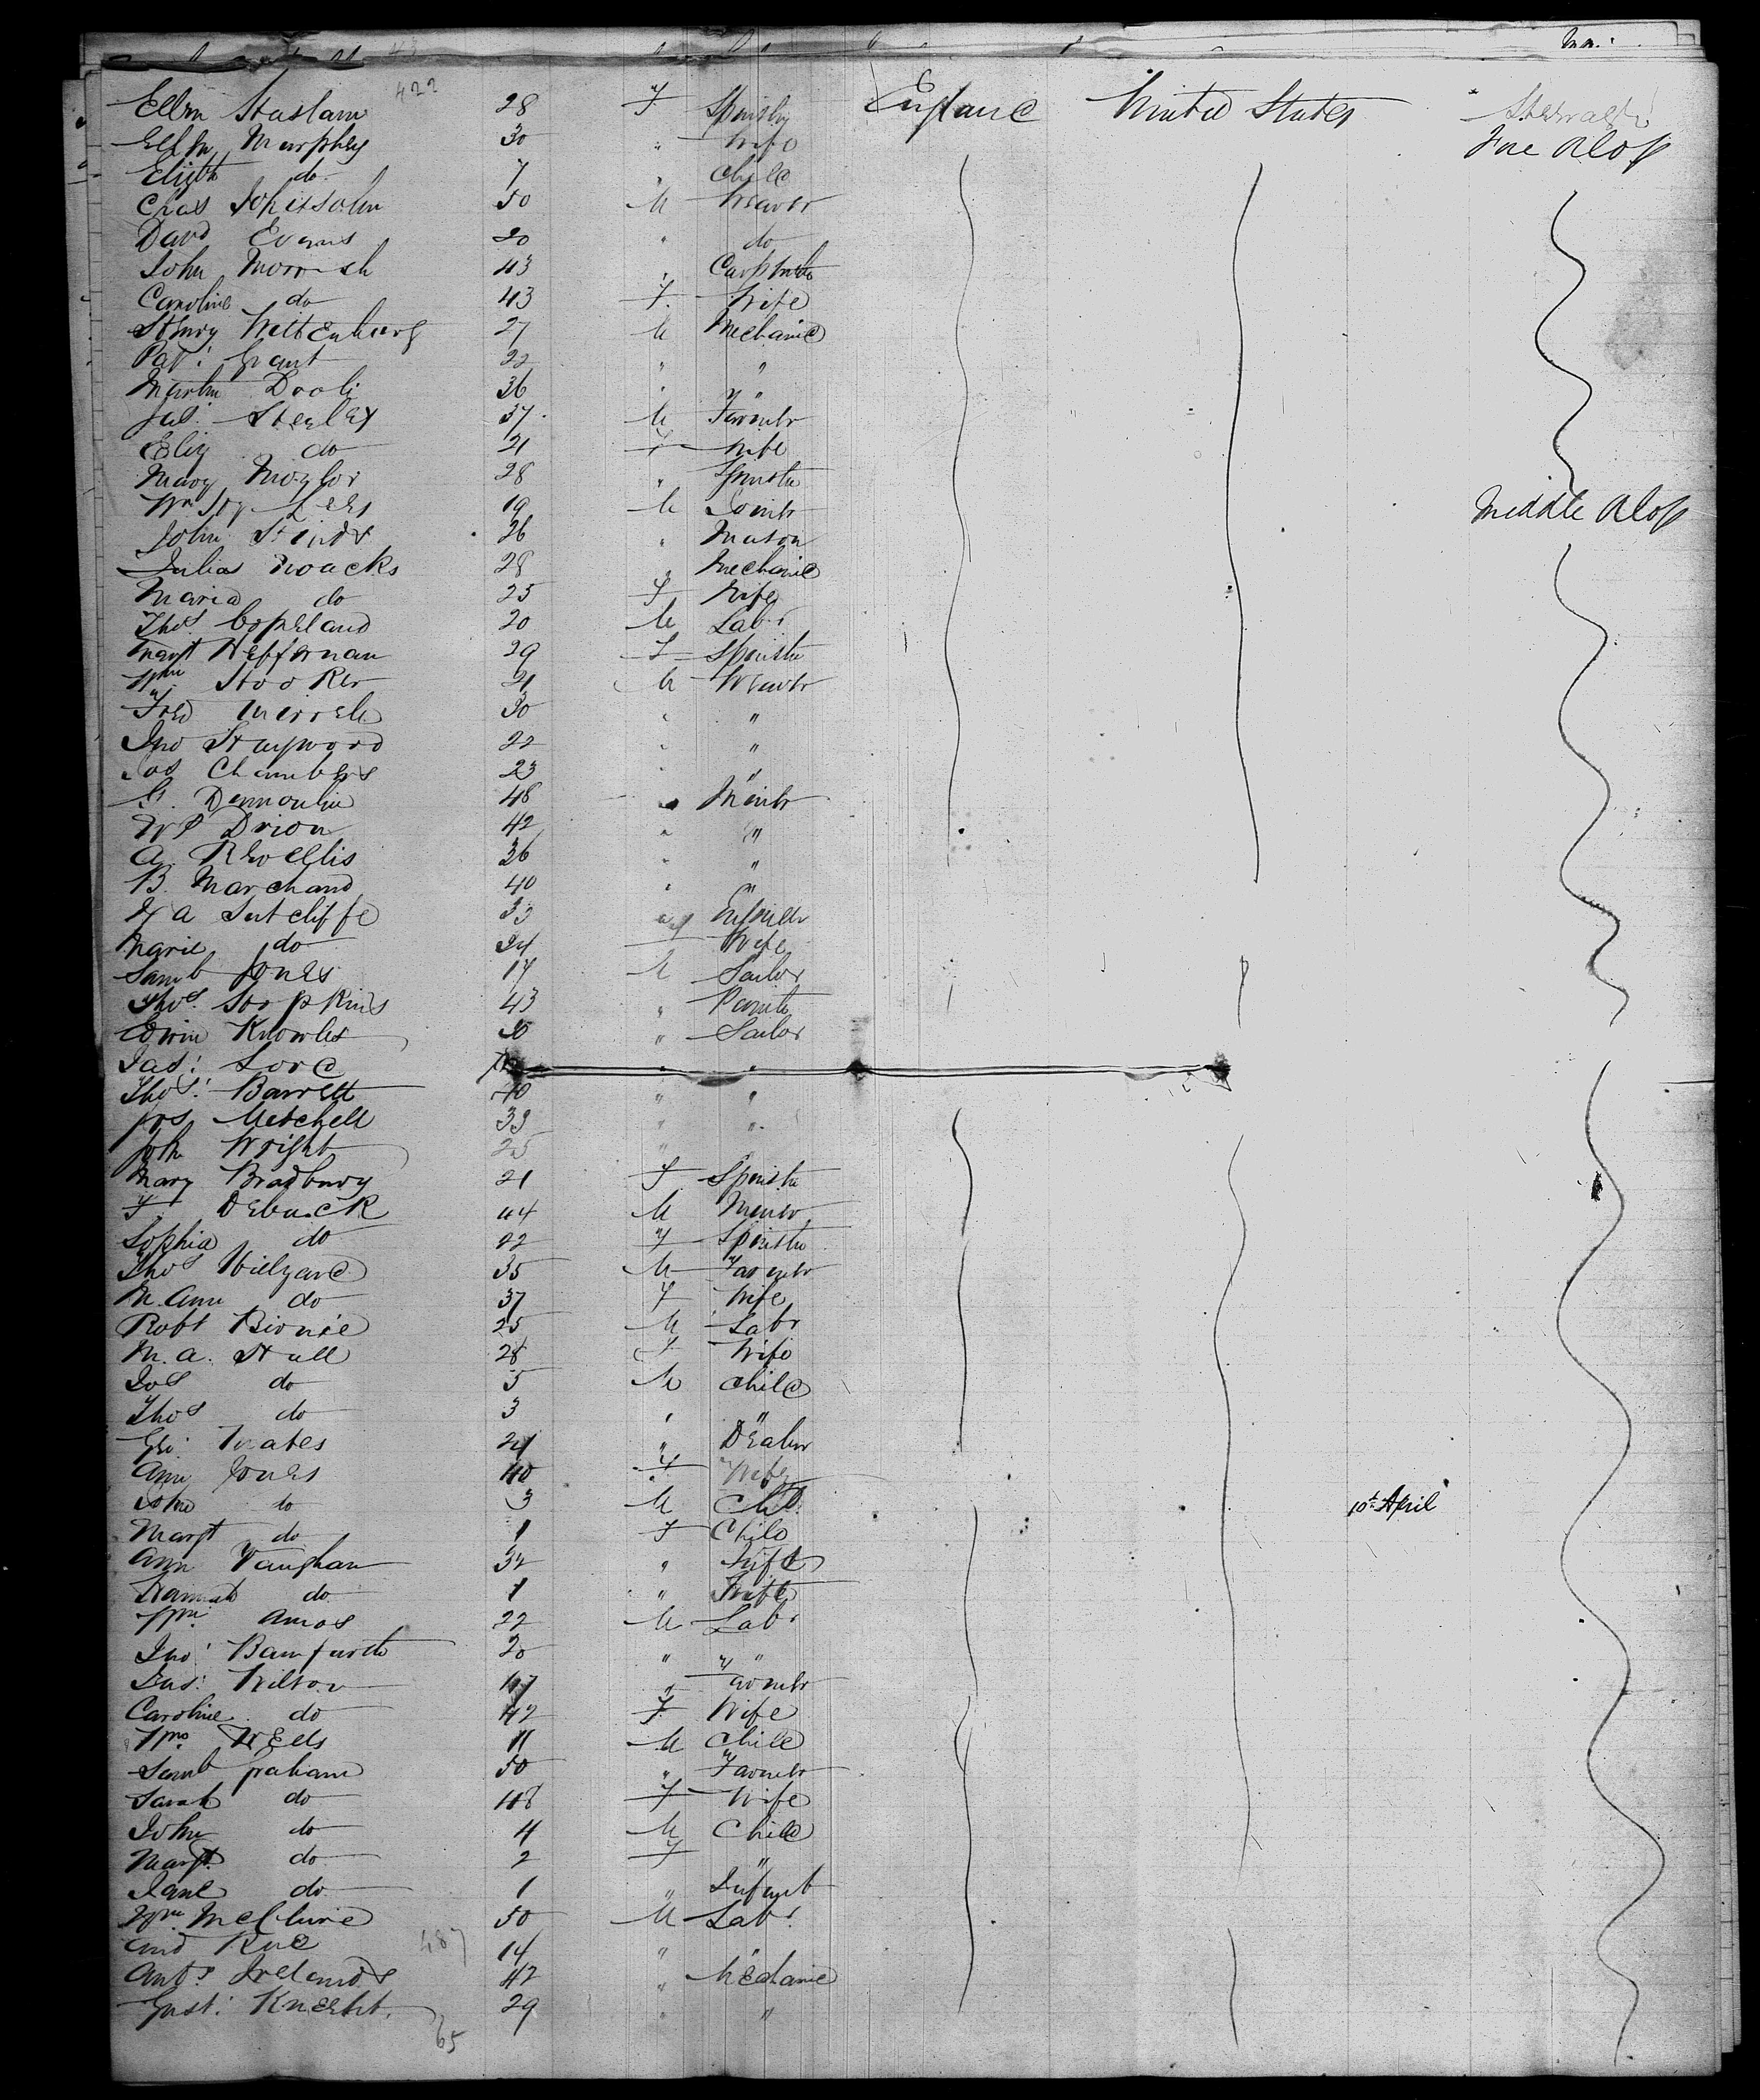 422
Ellen Haslam 28 F Spinster England United States
Ellen Murphy 30 " Wife Fore Alof
Elizth do 7 " Child
Chas Johnson 50 M Weaver
David Evans 20 " do
John 43 " Carpenter
Caroline do 43 F Wife
Henry Wittenburg 27 M Mechanic
Pat: Grant 22 " "
Martin 36 " "
Jas: Steeley 37 M Farmer
Eliz do 21 F Wife
Mary 28 " Spinster
Lees 19 M Joiner Middle Alof
John Hinds 26 " Mason
Julias Noacks 28 " Mechanic
Maria do 25 F Wife
Thos Copeland 20 M Labr
Margt Heffernan 29 F Spinster
Wm Hooker 21 M Weaver
Fred 30 " "
Jno Hayward 22 " "
Jos Chambers 23 " "
G. Demoulin 48 " Miner
W P Drion 42 " "
A. 36 " "
B. Marchand 40 " "
Y A Sutcliffe 33 Engineer
Marie do 24 Wife
Saml Jones 17 M Sailor
Thos Hopkins 43 " Painter
Edwin Knowles 30 " Sailor
Jas: Lord
Thos: Barrett 40 " "
Jos Metchell 39 " "
Joh Wright 25 "
Mary Bradbury 21 F Spinster
F Deback 44 M Miner
Sophia do 22 F Spinster
Thos Hillyard 35 M Farmer
M. Ann do 37 F Wife
Robt Birnie 25 M Labr
M. A. Hall 28 F Wife
Jos do 5 M Child
Thos do 3 " "
Geo: 24 " Dealer
Ann Jones 40 F Wife
John do 3 M Chd. 10th April
Margt do 1 F Child
Ann Vaughan 32 " Wife
Hannah do 1 "
Wm Amos 22 M Labr
Jno: Bamforth 20 " "
Jas: Wilson 47 " Farmer
Caroline do 42 F Wife
Wm Weels 11 M Child
Saml Graham 50 " Farmer
Sarah do 48 F Wife
John do 4 M Child
Margt do 2 F "
Jane do 1 " Infant
Wm McClure 50 M Labr
And Rae 487 14 " "
Ants Irelands 42 " Mechanic
Gust: Knecht. 29 " "
65